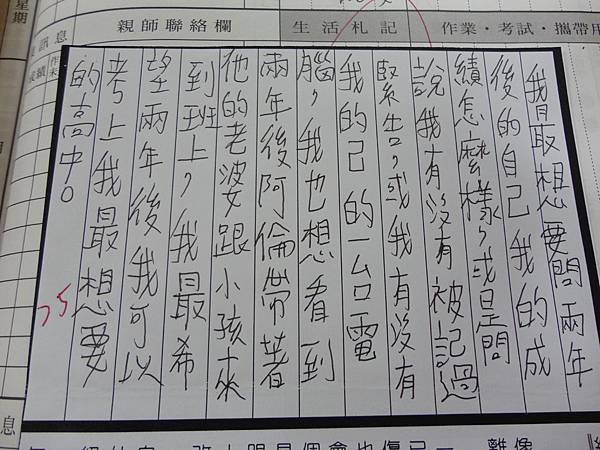 星期
訊息
親師聯絡欄
生活札記
作業・考試・攜帶用
我最想要問兩年
後的自己我的成
績怎麼樣,或是問
說我有沒有被記過
緊告,或我有沒有
我的己的一台電
腦,我也想看到
兩年後阿倫帶著
他的老婆跟小孩來
到班上,我最希
望兩年後我可以
考上我最想要
的高中。
75
息